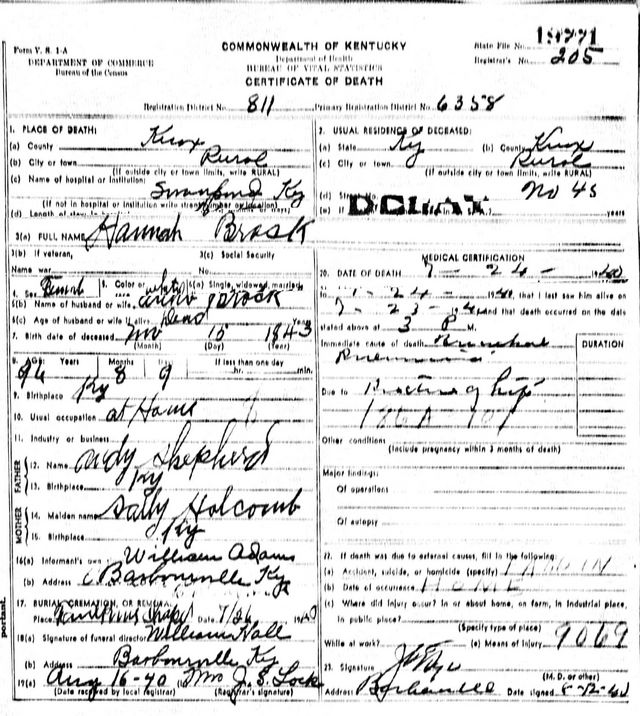 Form V. S. 1-A
DEPARTMENT OF COMMERCE
Bureau of the Census
COMMONWEALTH OF KENTUCKY
Department of Health
BUREAU OF VITAL STATISTICS
CERTIFICATE OF DEATH
State File No. 19771
Registrar's No. 205
Registration District No. 811 Primary Registration District No. 6358
1. PLACE OF DEATH:
(a) County Knox
(b) City or town Rural
(If outside city or town limits, write RURAL)
(c) Name of hospital or institution:
Ky
(If not in hospital or institution write street number or location)
(d) Length of stay
2. USUAL RESIDENCE OF DECEASED:
(a) State Ky (b) County Knox
(c) City or town Rural
(If outside city or town limits, write RURAL)
(d) Street No. No 45
(e) If years
3(a) FULL NAME Hannah Brock
3(b) If veteran,
Name war
3(c) Social Security
No.
4. Sex Female 5. Color or white 6(a) Single, widowed, married,
6(b) Name of husband or wife Brock
6(c) Age of husband or wife if alive Dead
7. Birth date of deceased 15 1843
(Month) (Day) (Year)
8. AGE Years Months Days If less than one day
96 8 9 hr. min.
9. Birthplace Ky
10. Usual occupation at Home
11. Industry or business
FATHER
12. Name Andy Shepherd
13. Birthplace Ky
MOTHER
14. Maiden name Sally Holcomb
15. Birthplace Ky
16(a) Informant's own William Adams
(b) Address Barbourville Ky
17. BURIAL, CREMATION, OR REMOVAL
Place Date 7/26 1940
18(a) Signature of funeral director William Hall
(b) Address Barbourville Ky
19(a) Aug 16-40 Mrs J. S. Lock
(Date received by local registrar) (Registrar's signature)
MEDICAL CERTIFICATION
20. DATE OF DEATH 7 - 24 - 1940
24 - 1940, that I last saw him alive on
7 - 23 - 1940 and that death occurred on the date
stated above at 3 P M.
Immediate cause of death Bronchial
Pneumonia
DURATION
Due to Fracture of hip
186A - 107
Other conditions
(Include pregnancy within 3 months of death)
Major findings:
Of operations
Of autopsy
22. If death was due to external causes, fill in the following:
(a) Accident, suicide, or homicide (specify)
(b) Date of occurrence HOME
(c) Where did injury occur? In or about home, on farm, in industrial place,
in public place?
(Specify type of place)
While at work? (e) Means of injury 9069
23. Signature
(M. D. or other)
Address Barbourville Date signed 8-12-40
portant.